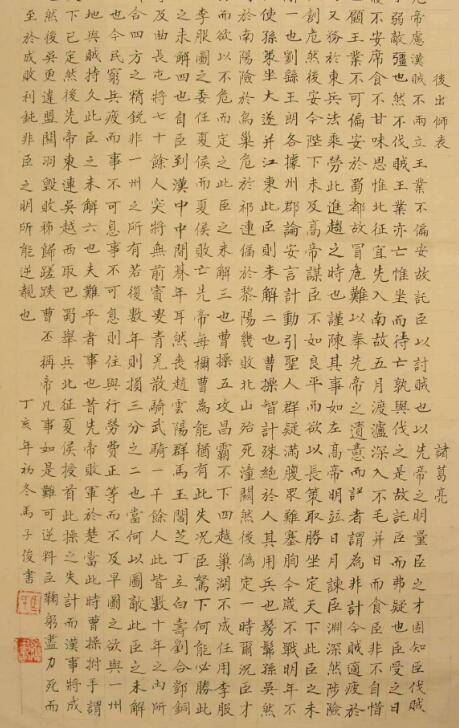 後出師表 諸葛亮
帝慮漢賊不兩立王業不偏安故託臣以討賊也以先帝之明量臣之才固知臣伐賊
弱敵彊也然不伐賊王業亦亡惟坐而待亡孰與伐之是故託臣而弗疑也臣受命之日
不安席食不甘味思惟北征宜先入南故五月渡瀘深入不毛并日而食臣非不自惜
顧王業不可偏安於蜀都故冒危難以奉先帝之遺意而議者謂為非計今賊適疲於
又務於東兵法乘勞此進趨之時也謹陳其事如左高帝明並日月謀臣淵深然涉險
創危然後安今陛下未及高帝謀臣不如良平而欲以長策取勝坐定天下此臣之未
一也劉繇王朗各據州郡論安言計動引聖人群疑滿腹眾難塞胸今歲不戰明年不
使孫策坐大遂并江東此臣之未解二也曹操智計殊絕於人其用兵也髣髴孫吳然
於南陽險於烏巢危於祁連偪於黎陽幾敗北山殆死潼關然後偽定一時爾況臣才
而欲以不危而定之此臣之未解三也曹操五攻昌霸不下四越巢湖不成任用李服
李服圖之委任夏侯而夏侯敗亡先帝每稱曹為能猶有此失況臣駑下何能必勝此
之未解四也自臣到漢中中間朞年耳然喪趙雲陽群馬玉閻芝丁立白壽劉合鄧銅
及曲長屯將七十餘人突將無前賨叟青羌散騎武騎一千餘人此皆數十年之內所
合四方之精銳非一州之所有若復數年則損三分之二也當何以圖敵此臣之未解
也今民窮兵疲而事不可息事不可息則住與行勞費正等而不及早圖之欲與一州
地與賊持久此臣之未解六也夫難平者事也昔先帝敗軍於楚當此時曹操拊手謂
下已定然後先帝東連吳越西取巴蜀舉兵北征夏侯授首此操之失計而漢事將成
然後吳更違盟關羽毀敗秭歸蹉跌曹丕稱帝凡事如是難可逆料臣鞠躬盡力死而
至於成敗利鈍非臣之明所能逆覩也 丁亥年初冬馬子俊書